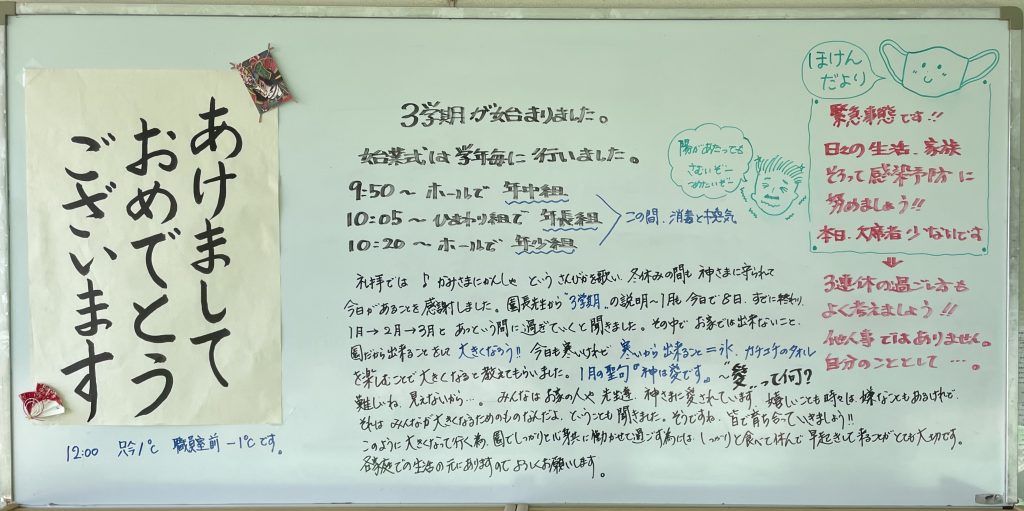 あけまして
おめでとう
ございます
12:00 只今1℃ 職員室前 -1℃です。
3学期が始まりました。
始業式は学年毎に行いました。
9:50〜ホールで 年中組
10:05〜ひまわり組で 年長組
10:20〜ホールで 年少組
この間、消毒と換気
陽があたっても
さむいぞー
つめたいぞー
礼拝では ♪かみさまにかんしゃ というさんびかを歌い、冬休みの間も神さまに守られて
今日があることを感謝しました。園長先生から"3学期"の説明〜1月も今日で8日、すでに終わり、
1月→2月→3月とあっという間に過ぎていくと聞きました。その中でお家では出来ないこと、
園だから出来ることをして大きくなろう!! 今日も寒いけれど 寒いから出来ること=氷、カチコチのタオル
を楽しむことで大きくなると教えてもらいました。1月の聖句『神は愛です。』〜"愛"って何?
難しいね、見えないから…。みんなはお家の人や先生達、神さまに愛されています。嬉しいことも時々は嫌なこともあるけれど、
それはみんなが大きくなるためのものなんだよ、ということも聞きました。そうですね、皆で育ち合っていきましょう!!
このように大きくなって行く為、園でしっかりと心身共に働かせて過ごす為には、しっかりと食べて休んで早起きして来ることがとても大切です。
各家庭での生活の元にありますのでよろしくお願いします。
ほけん
だより
緊急事態です!!
日々の生活、家族
そろって感染予防に
努めましょう!!
本日、欠席者少ないです
3連休の過ごし方も
よく考えましょう!!
他人事ではありません。
自分のこととして…。